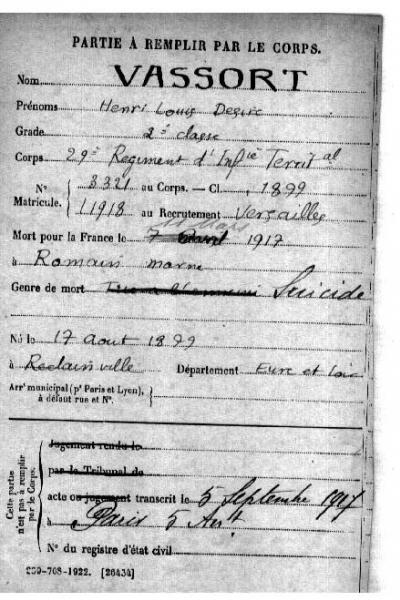 PARTIE À REMPLIR PAR LE CORPS.
Nom VASSORT
Prénoms Henri Louis Desire
Grade 2e classe
Corps 29e Regiment d'Infie Territal
N° Matricule. 3321 au Corps. — Cl. 1899
11918 au Recrutement Versailles
Mort pour la France le 1917
à Romain Marne
Genre de mort Suicide
Né le 17 Aout
à Reclainville Département Eure et Loir
Arrt municipal (pr Paris et Lyon), à défaut rue et N°.
Cette partie n'est pas à remplir par le Corps.
Jugement rendu le
par le Tribunal de
acte ou jugement transcrit le 5 Septembre 1917
à Paris 5 Arrt
N° du registre d'état civil
[26434]